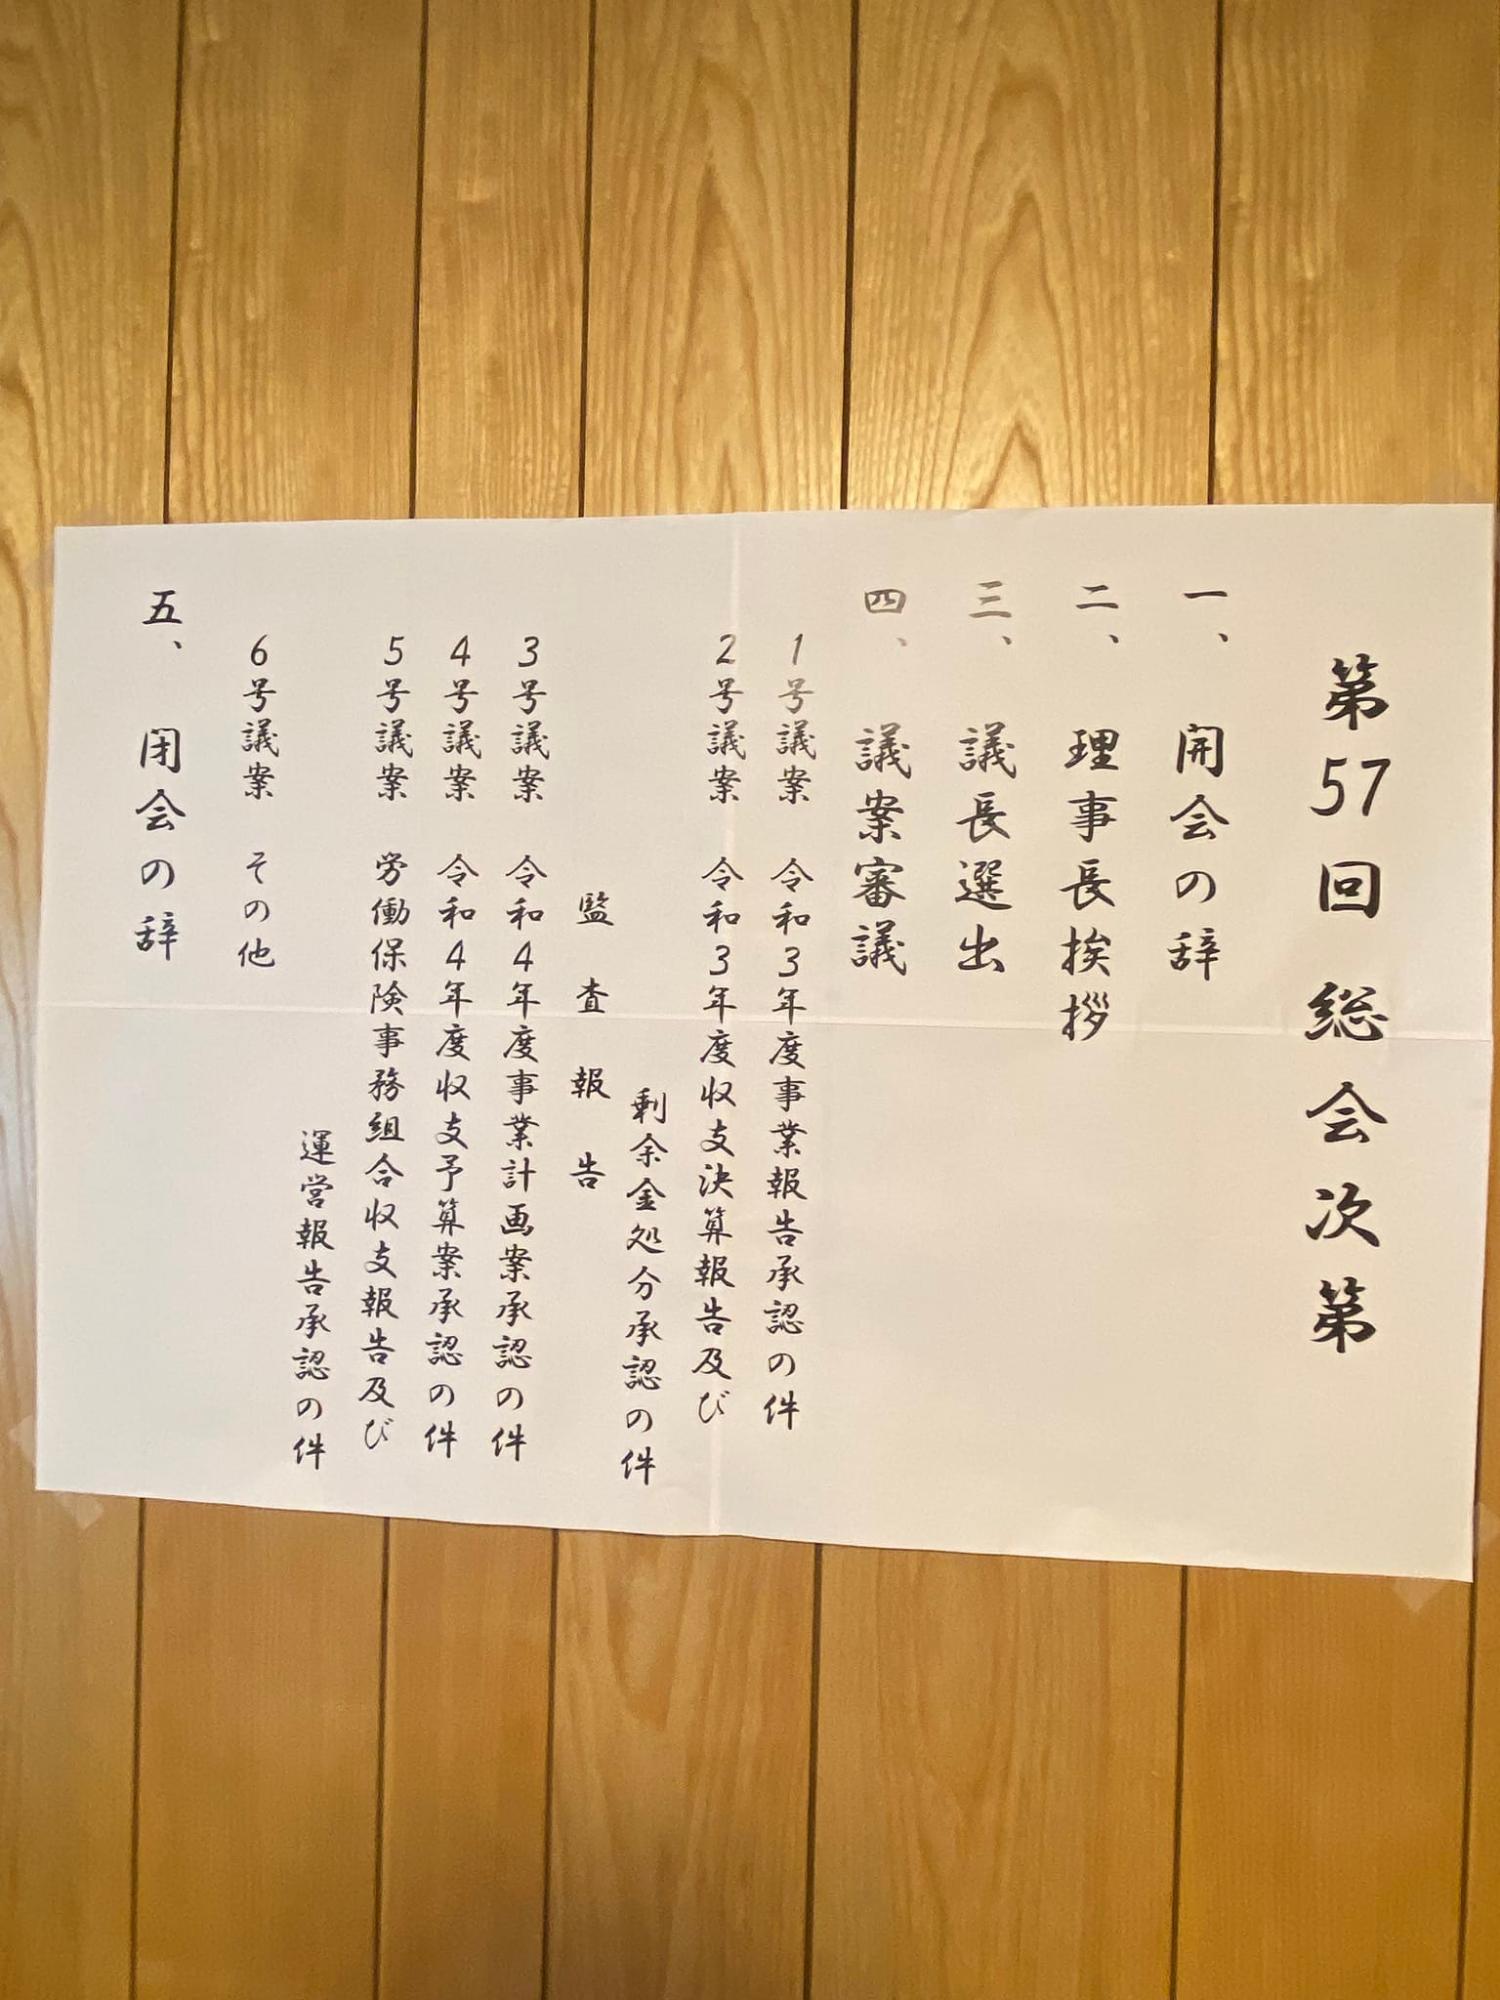 第57回総会次第
一、 開会の辞
二、 理事長挨拶
三、 議長選出
四、 議案審議
1号議案 令和3年度事業報告承認の件
2号議案 令和3年度収支決算報告及び
剰余金処分承認の件
監査報告
3号議案 令和4年度事業計画案承認の件
4号議案 令和4年度収支予算案承認の件
5号議案 労働保険事務組合収支報告及び
運営報告承認の件
6号議案 その他
五、 閉会の辞